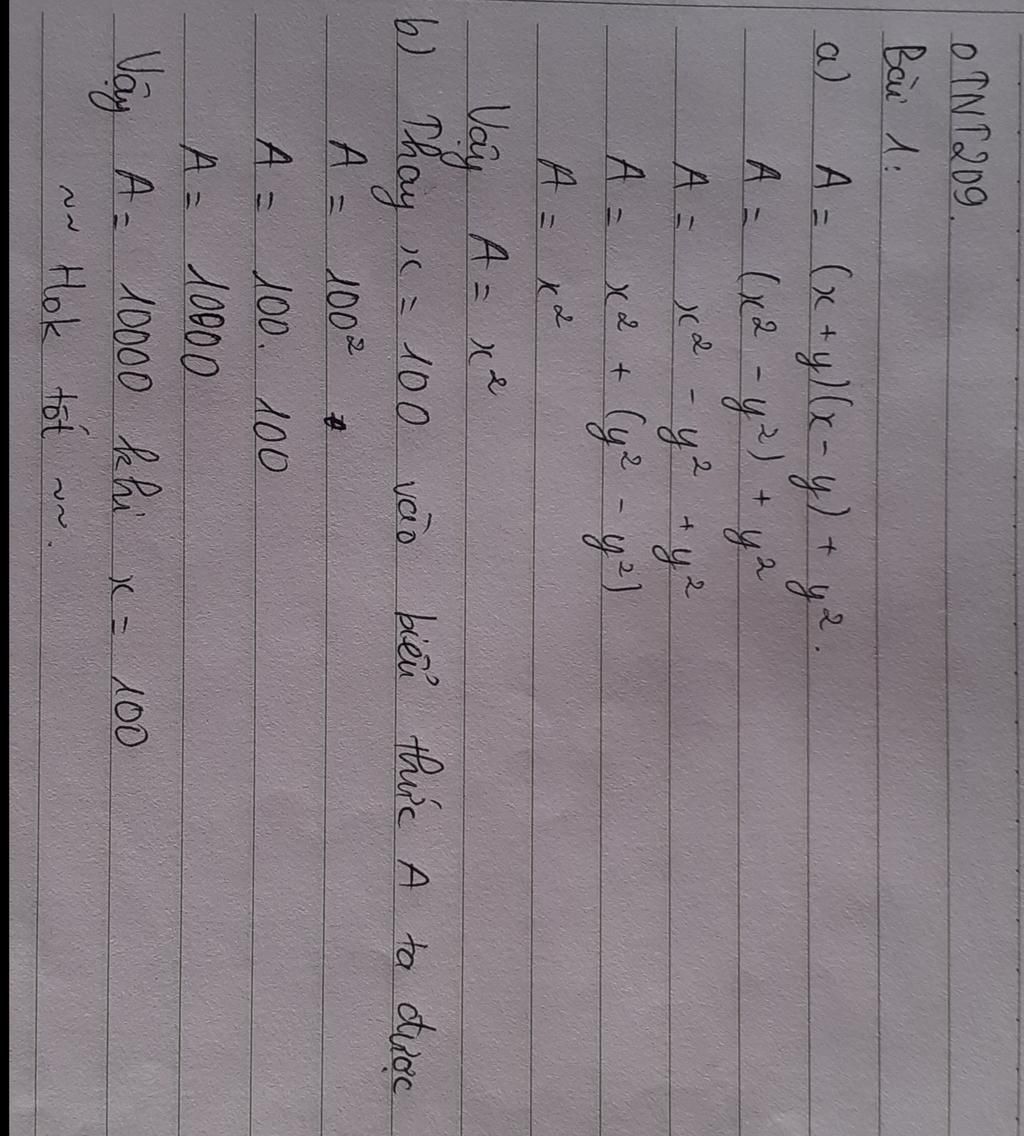 OTNT209.
Bài 1:
a) A = (x + y)(x - y) + y².
A = (x² - y²) + y²
A = x² - y² + y²
A = x² + (y² - y²)
A = x²
Vậy A = x²
b) Thay x = 100 vào biểu thức A ta được
A = 100²
A = 100. 100
A = 10000
Vậy A = 10000 khi x = 100
~~ Hok tốt ~~.